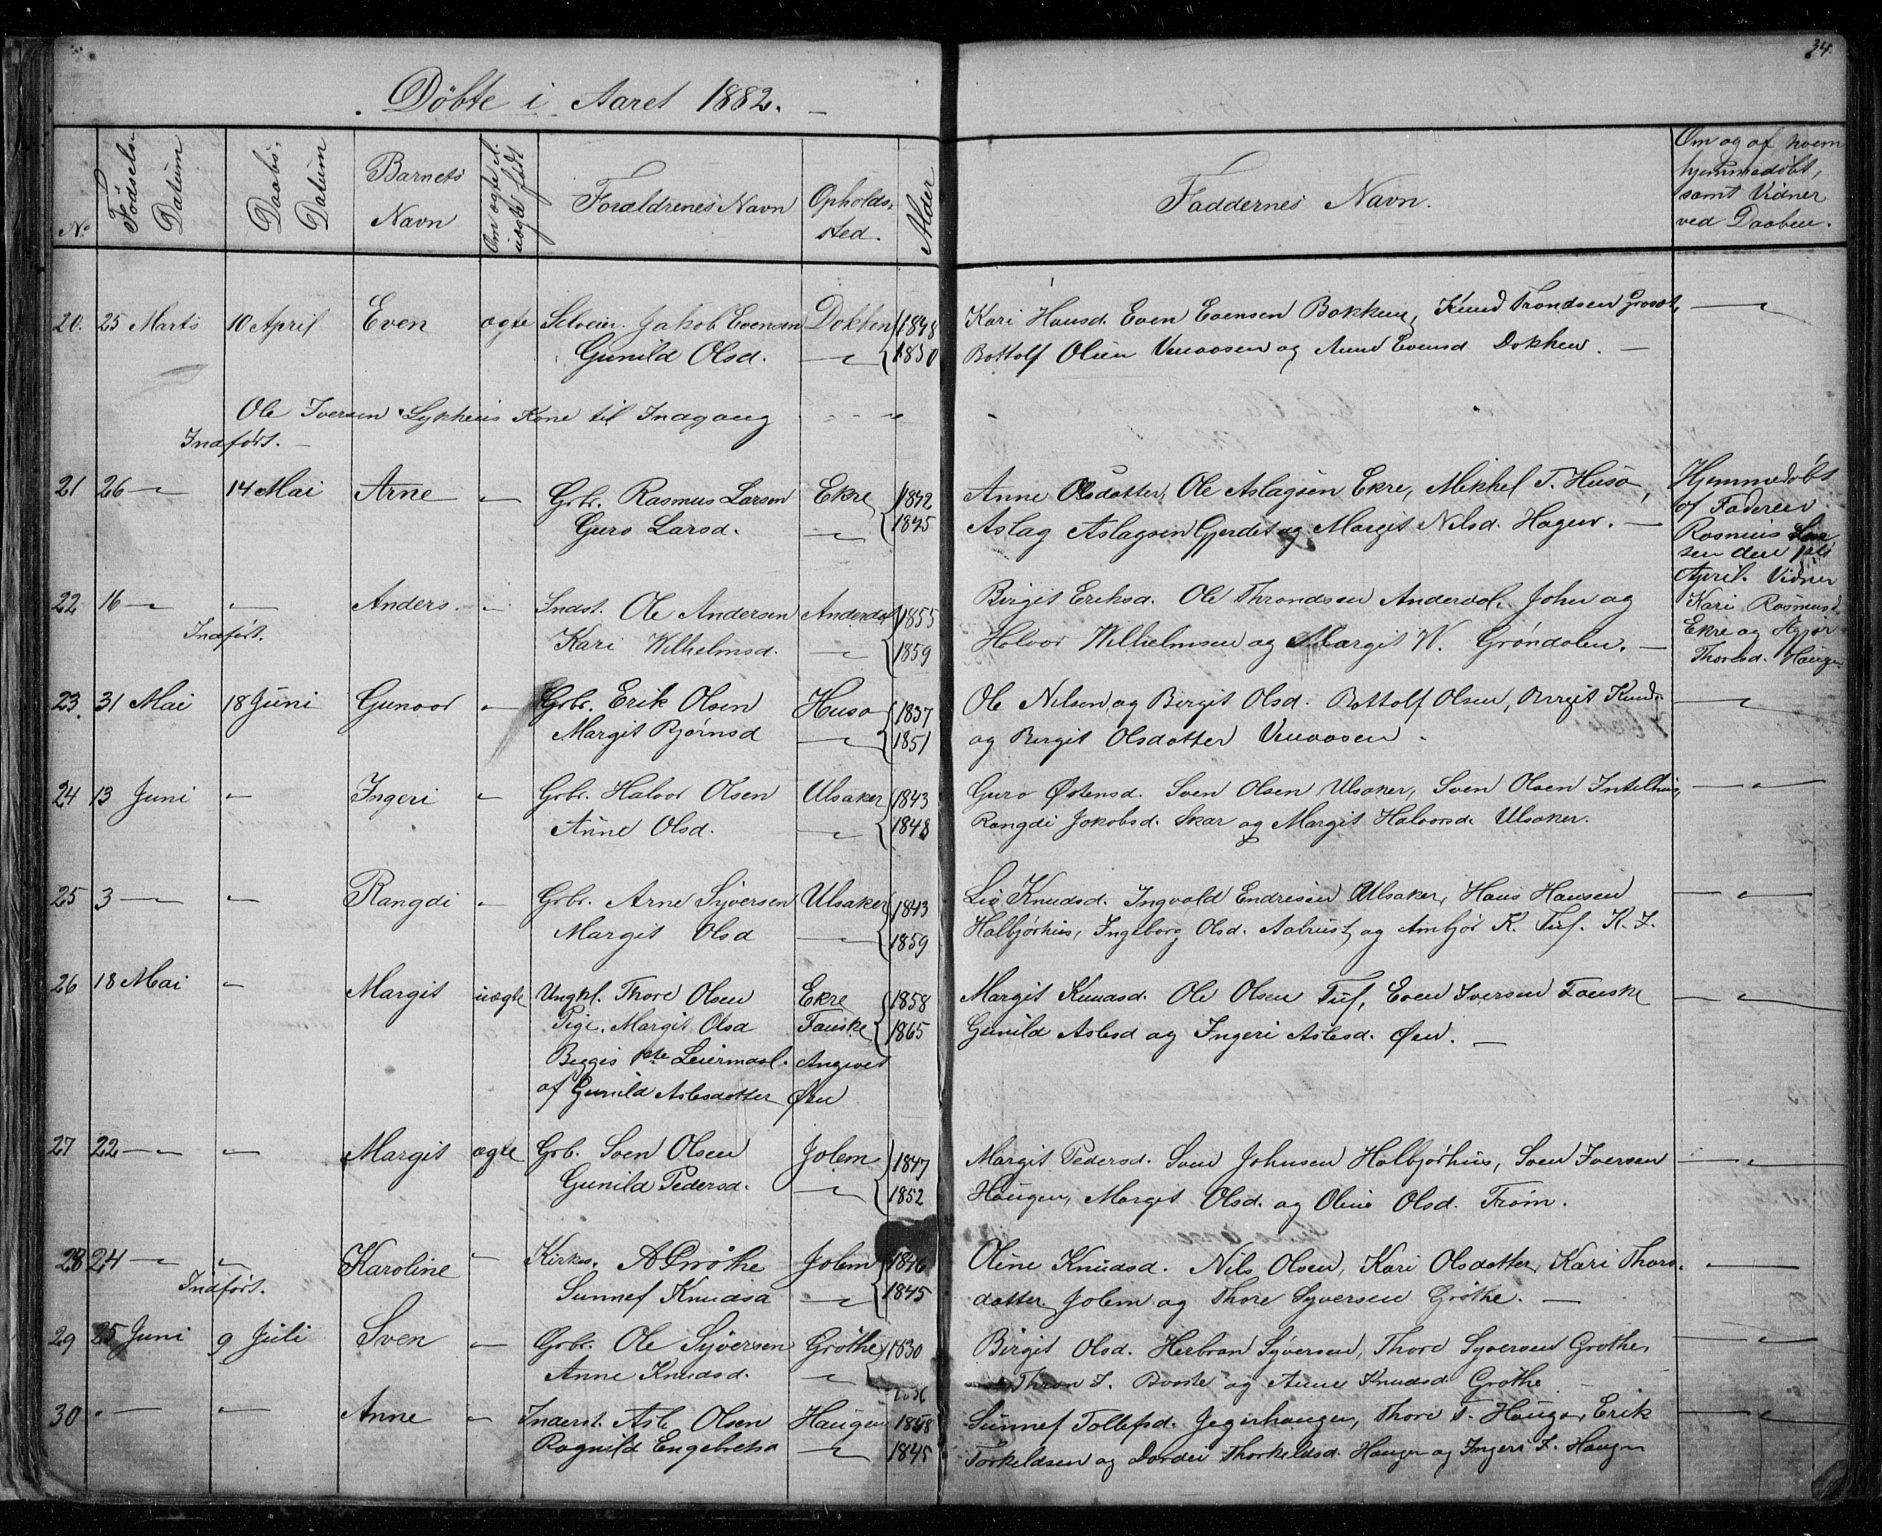 34.
Døbte i Aaret 1882.
No.
Fødsels-
Datum
Daabs-
Datum
Barnets
Navn
Om ægte el.
uægte født
Forældrenes Navn
Opholds-
sted.
Alder
Faddernes Navn.
Om og af hvem
hjemmedøbt,
samt Vidner
ved Daaben.
20. 25 Marts 10 April Even ægte Selveier. Jakob Evensen Dokken 1848 Kari Hansd. Even Evensen Bakken, Knud Trondsen Grosæt,
Gunild Olsd. 1850 Bottolf Olsen Venaasen og Anne Evensd Dokken.
Ole Iversen Lykkens Kone til Indgang
Indført.
21 26 14 Mai Arne Grbr. Rasmus Larsen Ekre 1842 Anne Olsdatter, Ole Aslagsen Ekre, Mikkel T. Huso, Hjemmedøbt
Guro Larsd. 1845 Aslag Aslagsen Gjerdet og Margit Nilsd. Hagen. af Faderen
Rasmus Lar
sen den
April. Vidner
Kari Rasmusd
Ekre og
Thoresd. Haugen
22 16 Anders. Indst. Ole Andersen Anderdal 1855 Birgit Eriksd. Ole Throndsen Anderdal, John og
Indført. Kari Wilhelmsd. 1859 Halvor Wilhelmsen og Margit W. Grøndalen.
23. 31 Mai 18 Juni Gunvor Grbr. Erik Olsen Huso 1837 Ole Nilsen og Birgit Olsd. Bottolf Olsen, Margit Knudsd
Margit Bjørnsd 1851 og Birgit Olsdatter Venaasen.
24 13 Juni Ingeri Grbr. Halvor Olsen Ulsaker 1843 Guro Østensd. Sven Olsen Ulsaker, Sven Olsen Intelhus,
Anne Olsd. 1848 Rangdi Jakobsd. Skar og Margit Halvorsd. Ulsaker.
25 3 Rangdi Grbr. Arne Syversen Ulsaker 1843 Liv Knudsd. Ingvald Endresen Ulsaker, Hans Hansen
Margit Olsd 1859 Halbjørhus, Ingeborg Olsd. Aalrust og Ambjør K. Tuf. K. T.
26 18 Mai Margit uægte Ungkl. Thore Olsen Ekre 1858 Margit Knudsd. Ole Olsen Tuf, Even Iversen Fauske
Pige. Margit Olsd Fauske 1865 Gunild Aslesd og Ingeri Aslesd. Øen.
Begges 1ste Leiermaal. Angivet
af Gunild Aslesdatter Øen
27 22 Margit ægte Grb. Sven Olsen Jolem 1847 Margit Pedersd. Sven Johnsen Halbjørhus, Sven Iversen
Gunild Pedersd. 1852 Haugen, Margit Olsd. og Oline Olsd. Trøim.
28 24 Karoline Kirkes. A Grøthe Jolem 1846 Oline Knudsd. Nils Olsen, Kari Olsdatter, Kari Thors-
Indført. Sunnef Knudsd 1845 datter Jolem og Thore Syversen Grøthe.
29 25 Juni 9 Juli Sven Grbr. Ole Syversen Grøthe 1830 Birgit Olsd. Herbran Syversen, Thore Syversen Grøthe,
Anne Knudsd. Thron T. og Anne Knudsd. Grøthe
30 Anne Inderst. Asle Olsen Haugen 1848 Sunnef Tollefsd. Jegerhaugen, Thore T. Haugen, Erik
Ragnild Engebretsd 1845 Torkeldsen og Dordei Thorkeldsd. Haugen og Ingeri T. Haugen